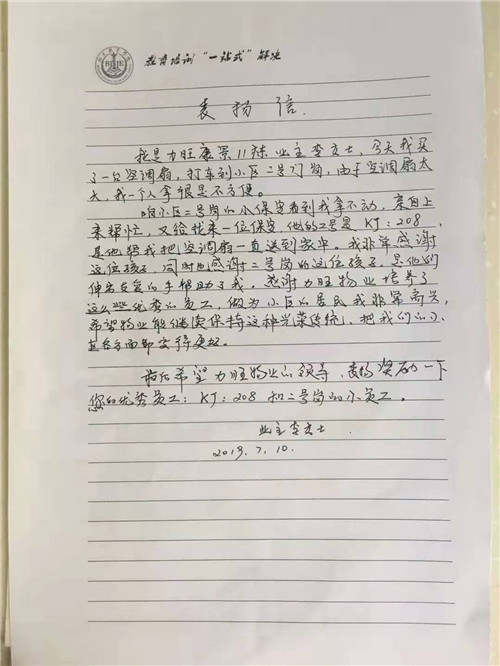 教育培训“一站式”解决
表扬信
我是力旺康景11栋业主李女士，今天我买
了一台空调扇，打车到小区二号门岗，由于空调扇太
大，我一个人拿很是不方便。
咱小区二号岗的小保安看到我拿不动，亲自上
来帮忙，又给找来一位保安，他的工号是KJ:208，
是他帮我把空调扇一直送到家中。我非常感谢
这位孩子，同时也感谢二号岗的这位孩子，是他们
伸出友爱的手帮助了我。感谢力旺物业培养了
这么些优秀的员工，做为小区的居民我非常高兴，
希望物业能继续保持这种光荣传统，把我们的小
区各方面都变得更好。
最后希望力旺物业的领导，表扬奖励一下
您的优秀员工：KJ:208和二号岗的小员工。
业主李女士
2019.7.10.